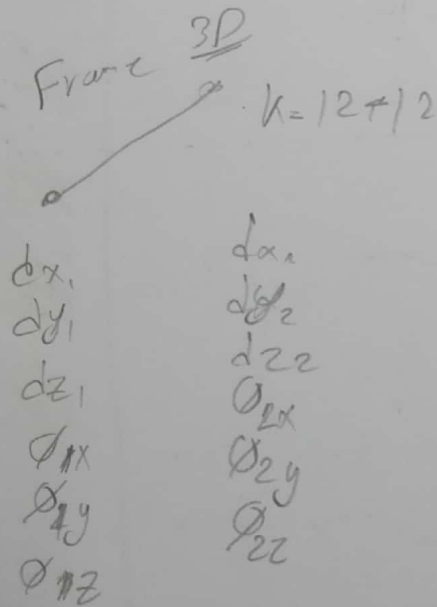 Frame 3D
K=12*12
dx1
dy1
dz1
Ø1x
Ø1y
Ø1z
dx2
dy2
dz2
Ø2x
Ø2y
Ø2z